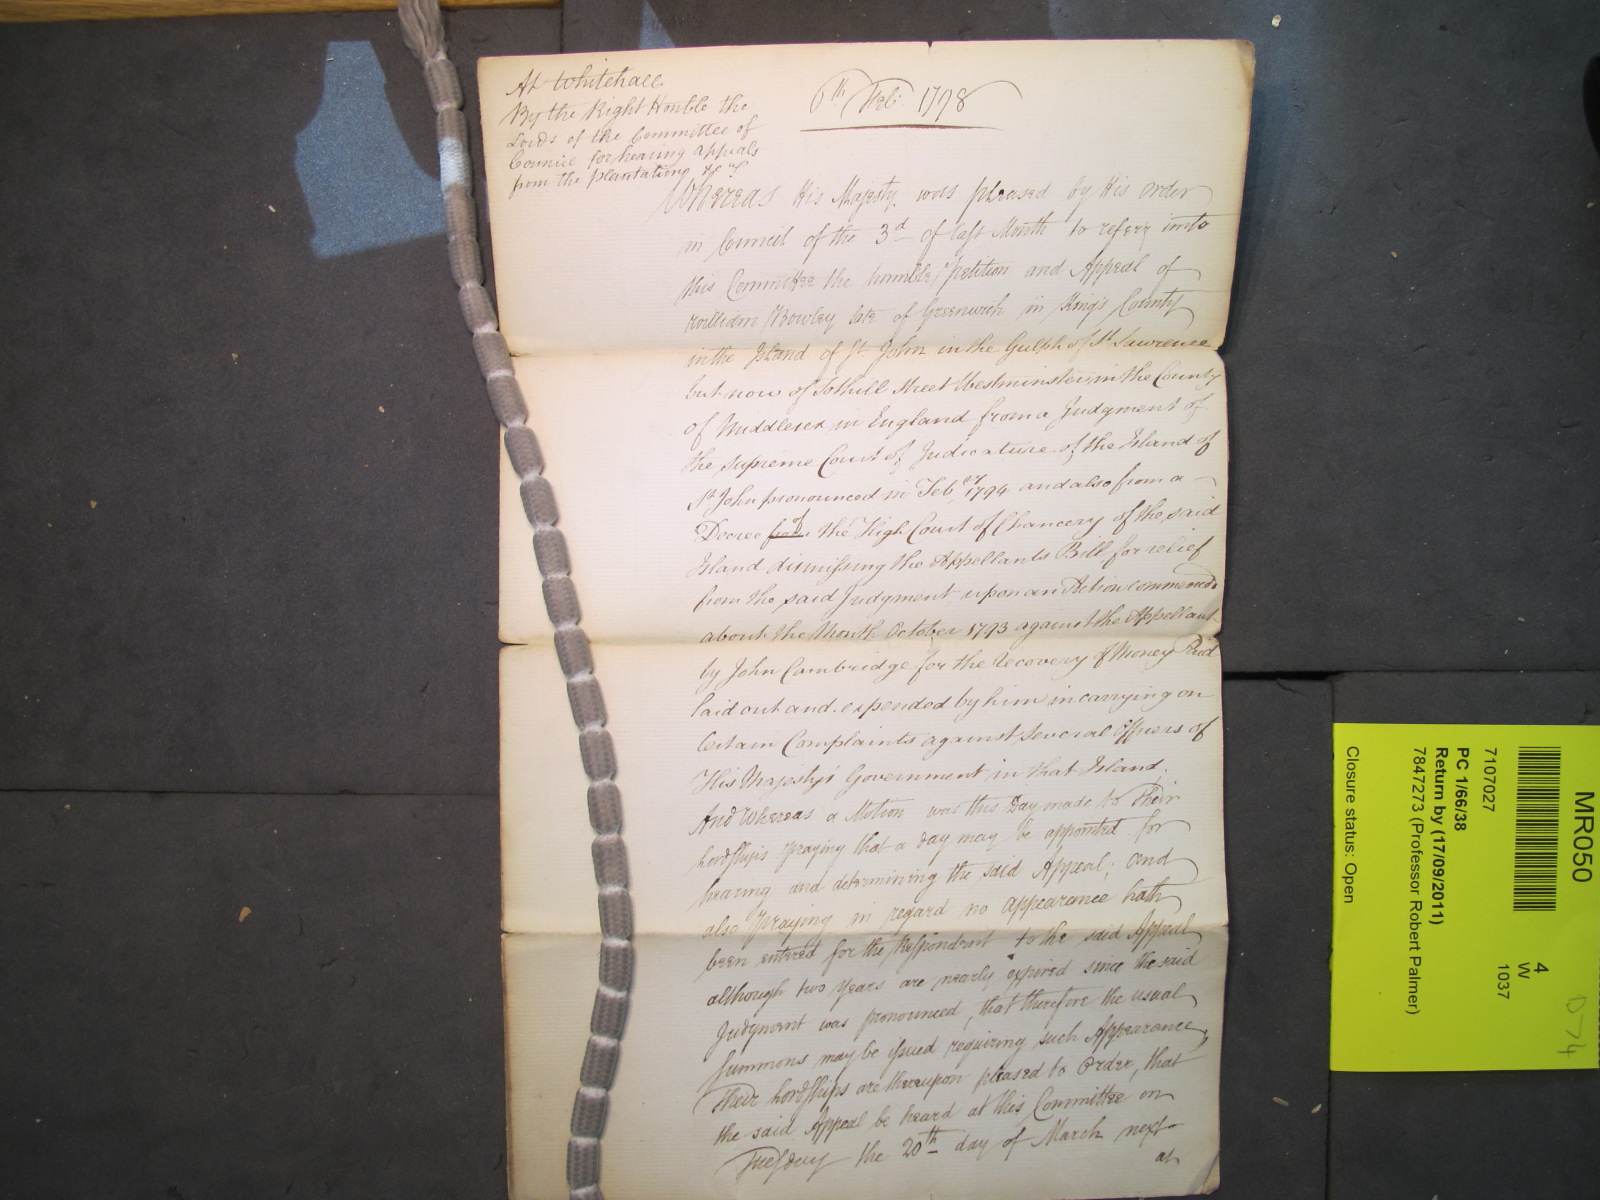 At Whitehall
By the Right Honble the
Lords of the Committee of
Council for hearing Appeals
from the plantations &c &c
6th Feb: 1798
Whereas His Majesty was pleased by His Order
in Council of the 3d of last Month to referr unto
this Committee the humble Petition and Appeal of
William Bowley late of Greenwich in Kings County
in the Island of St John in the Gulph of St Lawrence
but now of Tothill Street Westminster in the County
of Middlesex in England from a Judgment of
the Supreme Court of Judicature of the Island of
St John pronounced in Febry 1794 and also from a
Decree of the High Court of Chancery of the said
Island dismissing the Appellants Bill for relief
from the said Judgment upon an Action commenced
about the Month October 1793 against the Appellant
by John Cambridge for the Recovery of Money Paid
laid out and expended by him in carrying on
Certain Complaints against Several Officers of
His Majesty's Government in that Island.
And Whereas a Motion was this Day made to Their
Lordships praying that a day may be appointed for
hearing and determining the said Appeal; and
also praying in regard no appearance hath
been entered for the Respondent to the said Appeal
although two Years are nearly expired since the said
Judgment was pronounced, that therefore the usual
Summons may be issued requiring such Appearance,
Their Lordships are thereupon pleased to Order, that
the said Appeal be heard at this Committee on
Tuesday the 20th day of March next
at
MR050
4
W
1037
7107027
PC 1/66/38
Return by (17/09/2011)
7847273 (Professor Robert Palmer)
Closure status: Open